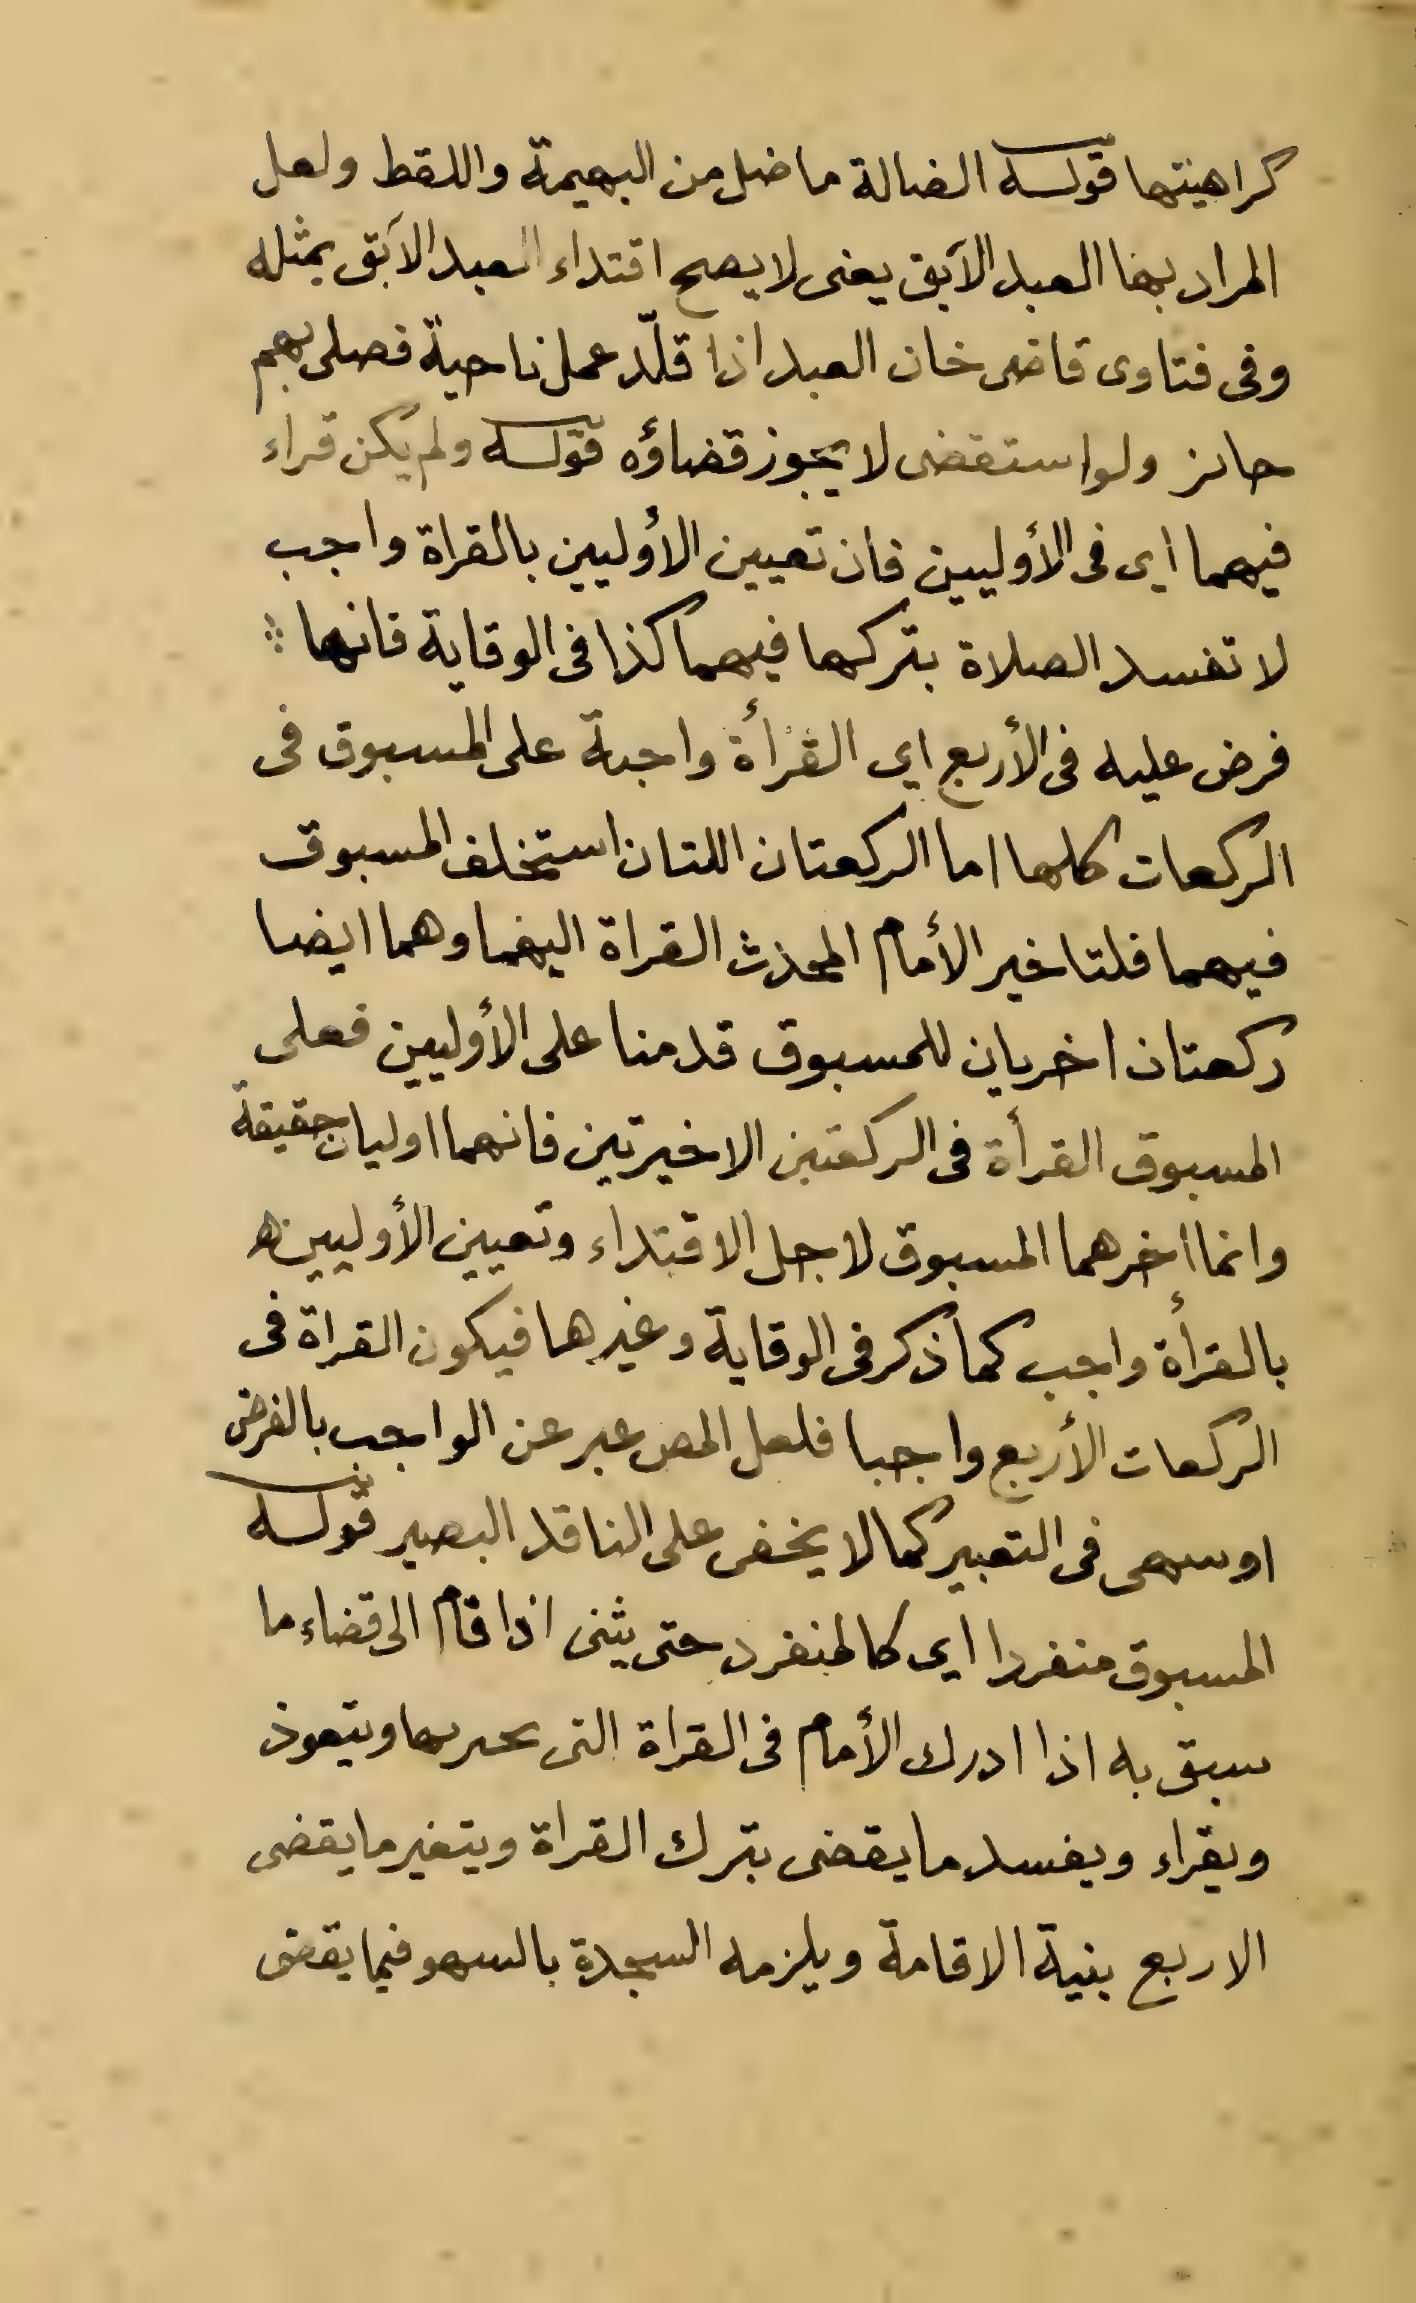 كراهيتها قوله الضالة ما ضل من البهيمة واللقط ولعل
المراد بها العبد الآبق يعنى لا يصح اقتداء العبد الآبق بمثله
وفى فتاوى قاضى خان العبد اذا قلّد عمل ناحية فصلى بهم
جائز ولو استقضى لا يجوز قضاؤه قوله ولم يكن قراء
فيهما اى فى الأوليين فان تعيين الأوليين بالقراة واجب
لا تفسد الصلاة بتركها فيهما كذا فى الوقاية فانها
فرض عليه فى الأربع اى القرأة واجبة على المسبوق فى
الركعات كلها اما الركعتان اللتان استخلف المسبوق
فيهما فلتاخير الأمام المحدث القراة اليهما وهما ايضا
ركعتان اخريان للمسبوق قدمنا على الأوليين فعلى
المسبوق القرأة فى الركعتين الاخيرتين فانهما اوليان حقيقة
وانما اخرهما المسبوق لاجل الاقتداء وتعيين الأوليين
بالقرأة واجب كما ذكر فى الوقاية وغيرها فيكون القراة فى
الركعات الأربع واجبا فلعل المص عبر عن الواجب بالفرض
او سهى فى التعبير كما لا يخفى على الناقد البصير قوله
المسبوق منفردا اى كالمنفرد حتى يثنى اذا قام الى قضاء ما
سبق به اذا ادرك الأمام فى القراة التى ويتعوذ
ويقراء ويفسد ما يقضى بترك القراة ويتغير ما يقضى
الاربع بنية الاقامة ويلزمه السجدة بالسهو فيما يقضى